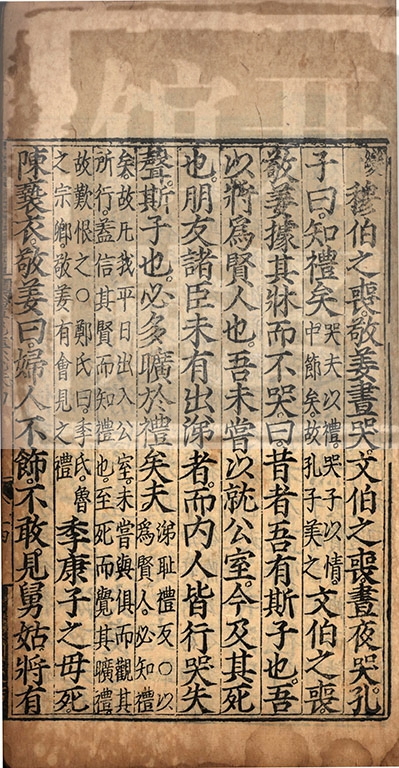 穆伯之喪。敬姜晝哭。文伯之喪。晝夜哭。孔
子曰。知禮矣
哭夫以禮。哭子以情。
中節矣。故孔子美之
文伯之喪。
敬姜據其牀而不哭。曰。昔者吾有斯子也。吾
以將爲賢人也。吾未嘗以就公室。今及其死
也。朋友諸臣未有出涕者。而内人皆行哭失
聲。斯子也。必多曠於禮矣夫
涕耻禮友〇以
爲賢人。必知禮
矣。故凡我平日出入公室。未嘗與俱而觀其
所行。蓋信其賢而知禮也。至死而覺其曠禮。
故歎恨之〇鄭氏曰。季氏。魯
之宗卿。敬姜有會見之禮
季康子之母死
陳褻衣。敬姜曰。婦人不飾。不敢見舅姑。將有